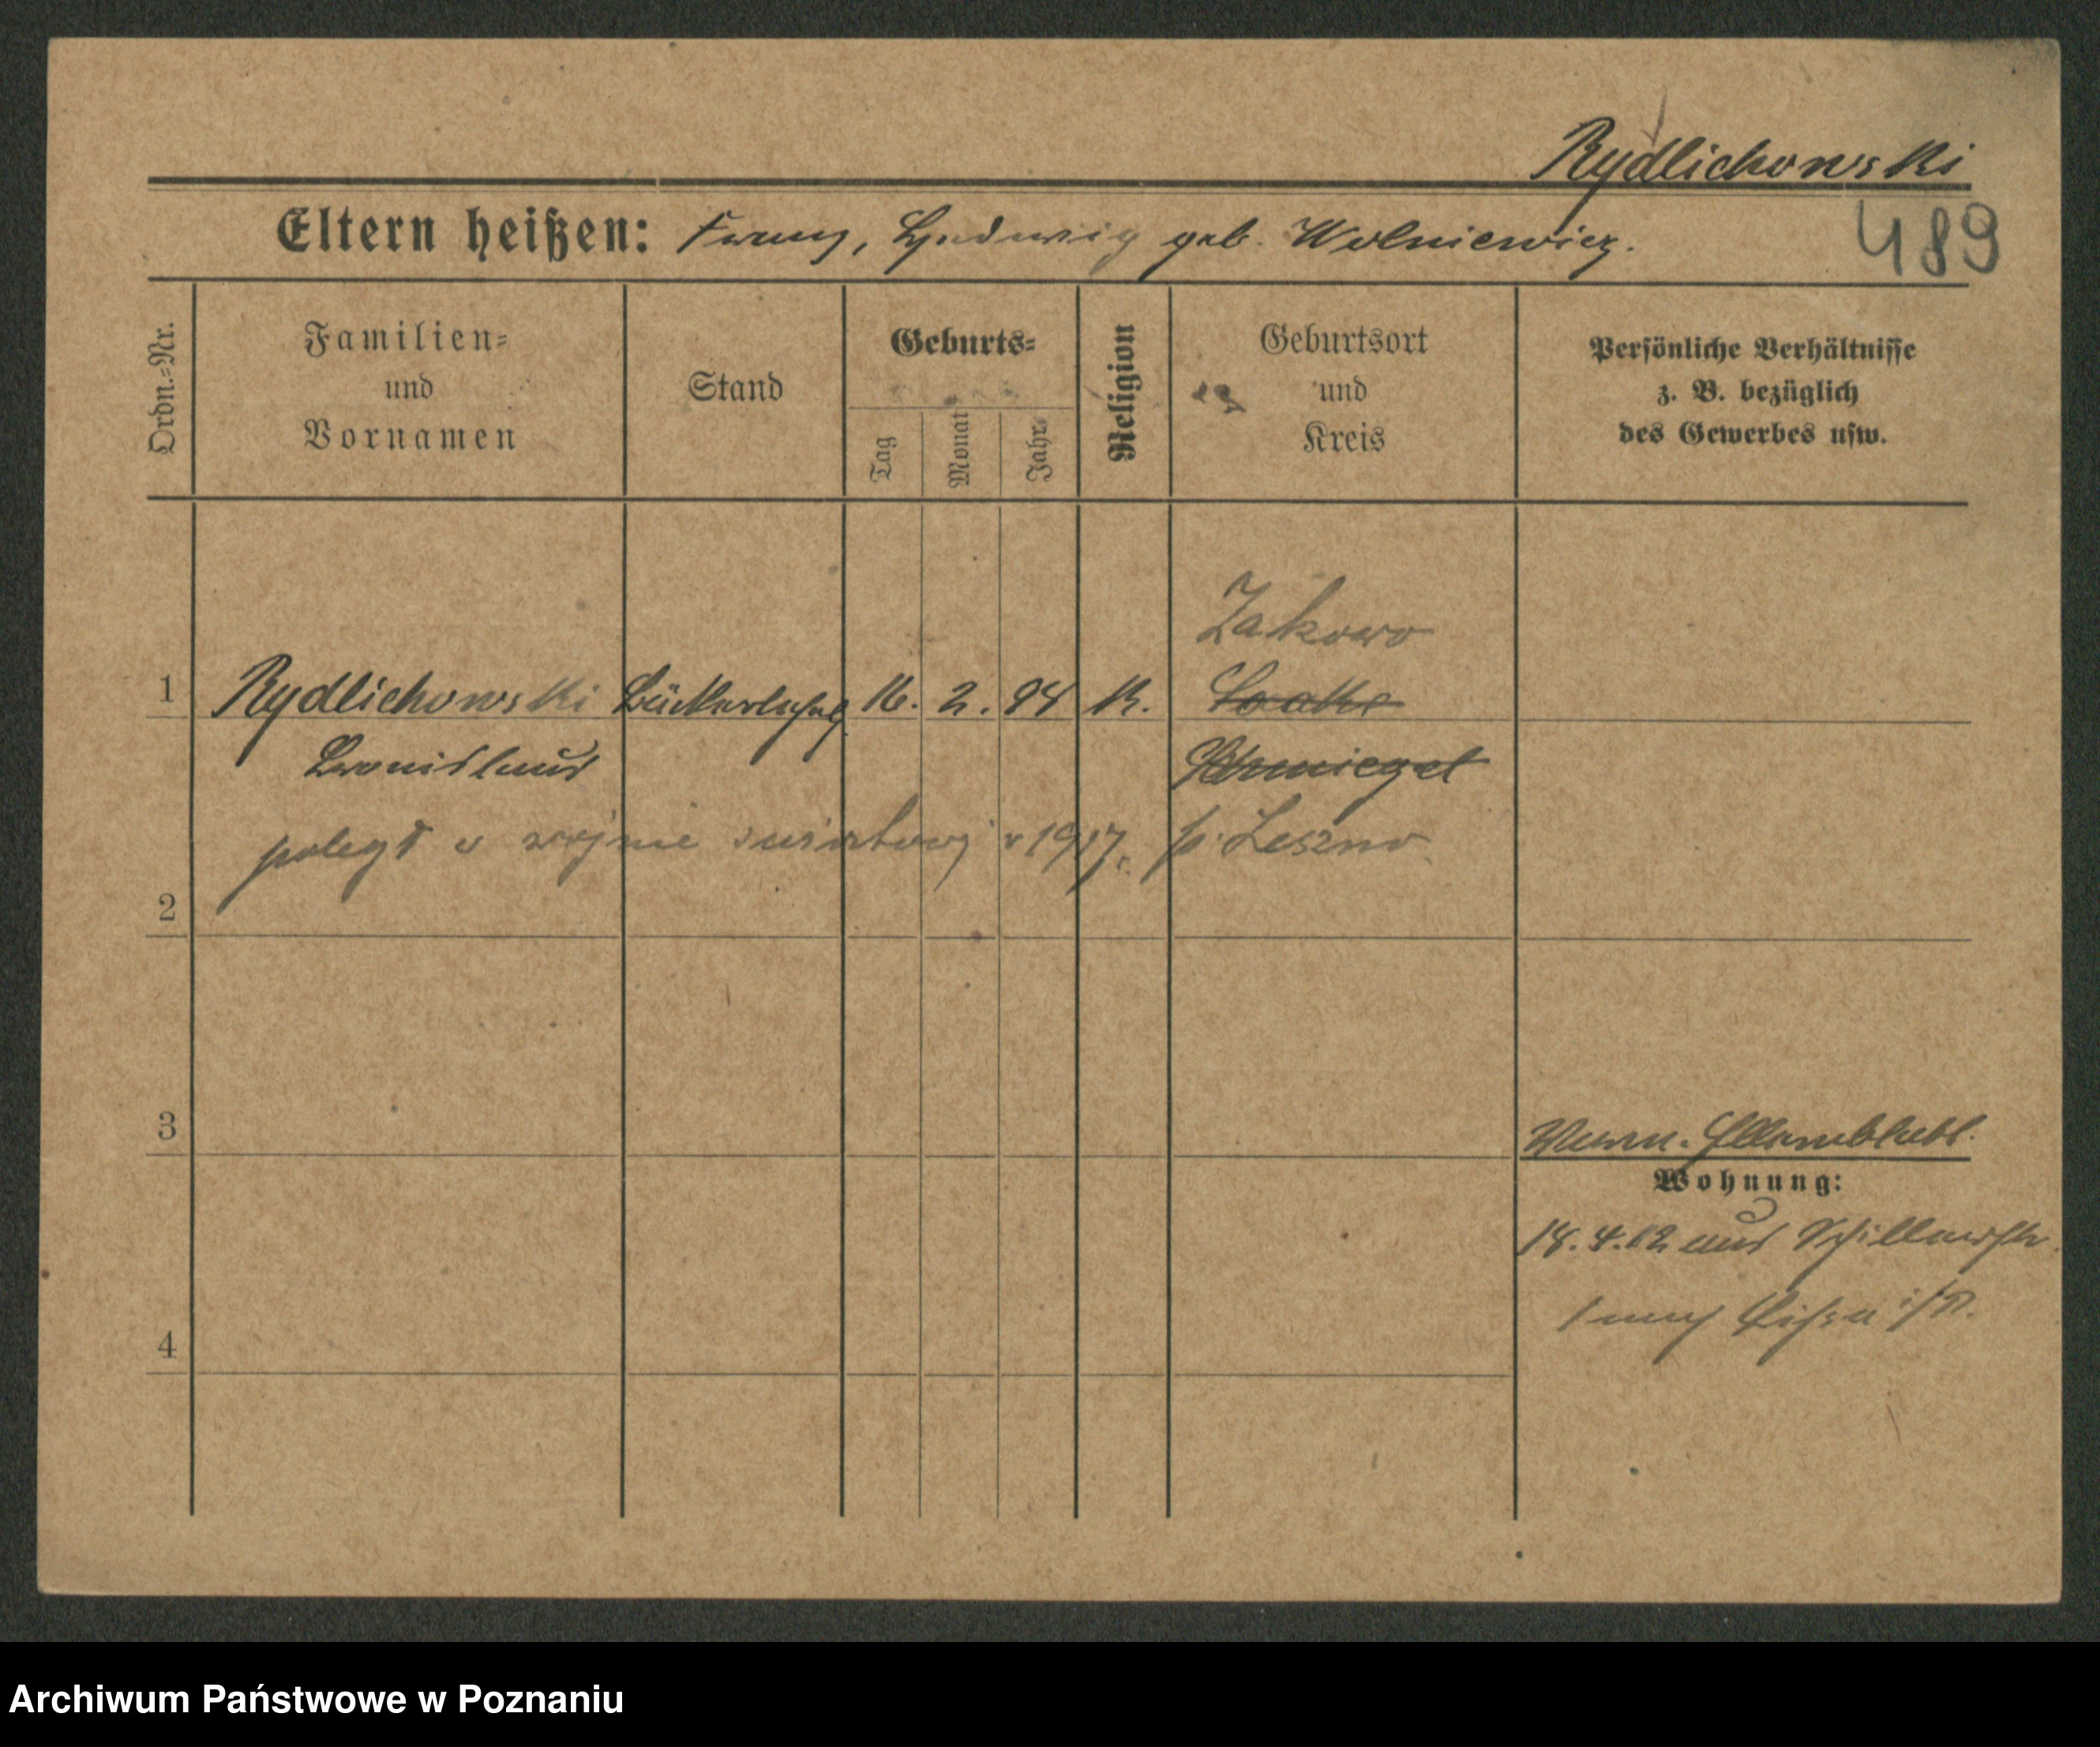 Rydlichowski
Eltern heißen: Franz, Hedwig geb. Wolniewicz.
489
Ordn.=Nr.
Familien=
und
Vornamen
Stand
Geburts=
Tag
Monat
Jahr
Religion
Geburtsort
und
Kreis
Persönliche Verhältnisse
z. B. bezüglich
des Gewerbes usw.
Żakowo
1 Rydlichowski Bäckerlehrl. 16. 2. 94 K.
Bronislaus Schmiegel
poległ w wojnie światowej w 1917 r. p. Leszno
2
3
Wohnung:
18.4.12 aus Schillerstr.
nach Lissa i/P.
4
Archiwum Państwowe w Poznaniu